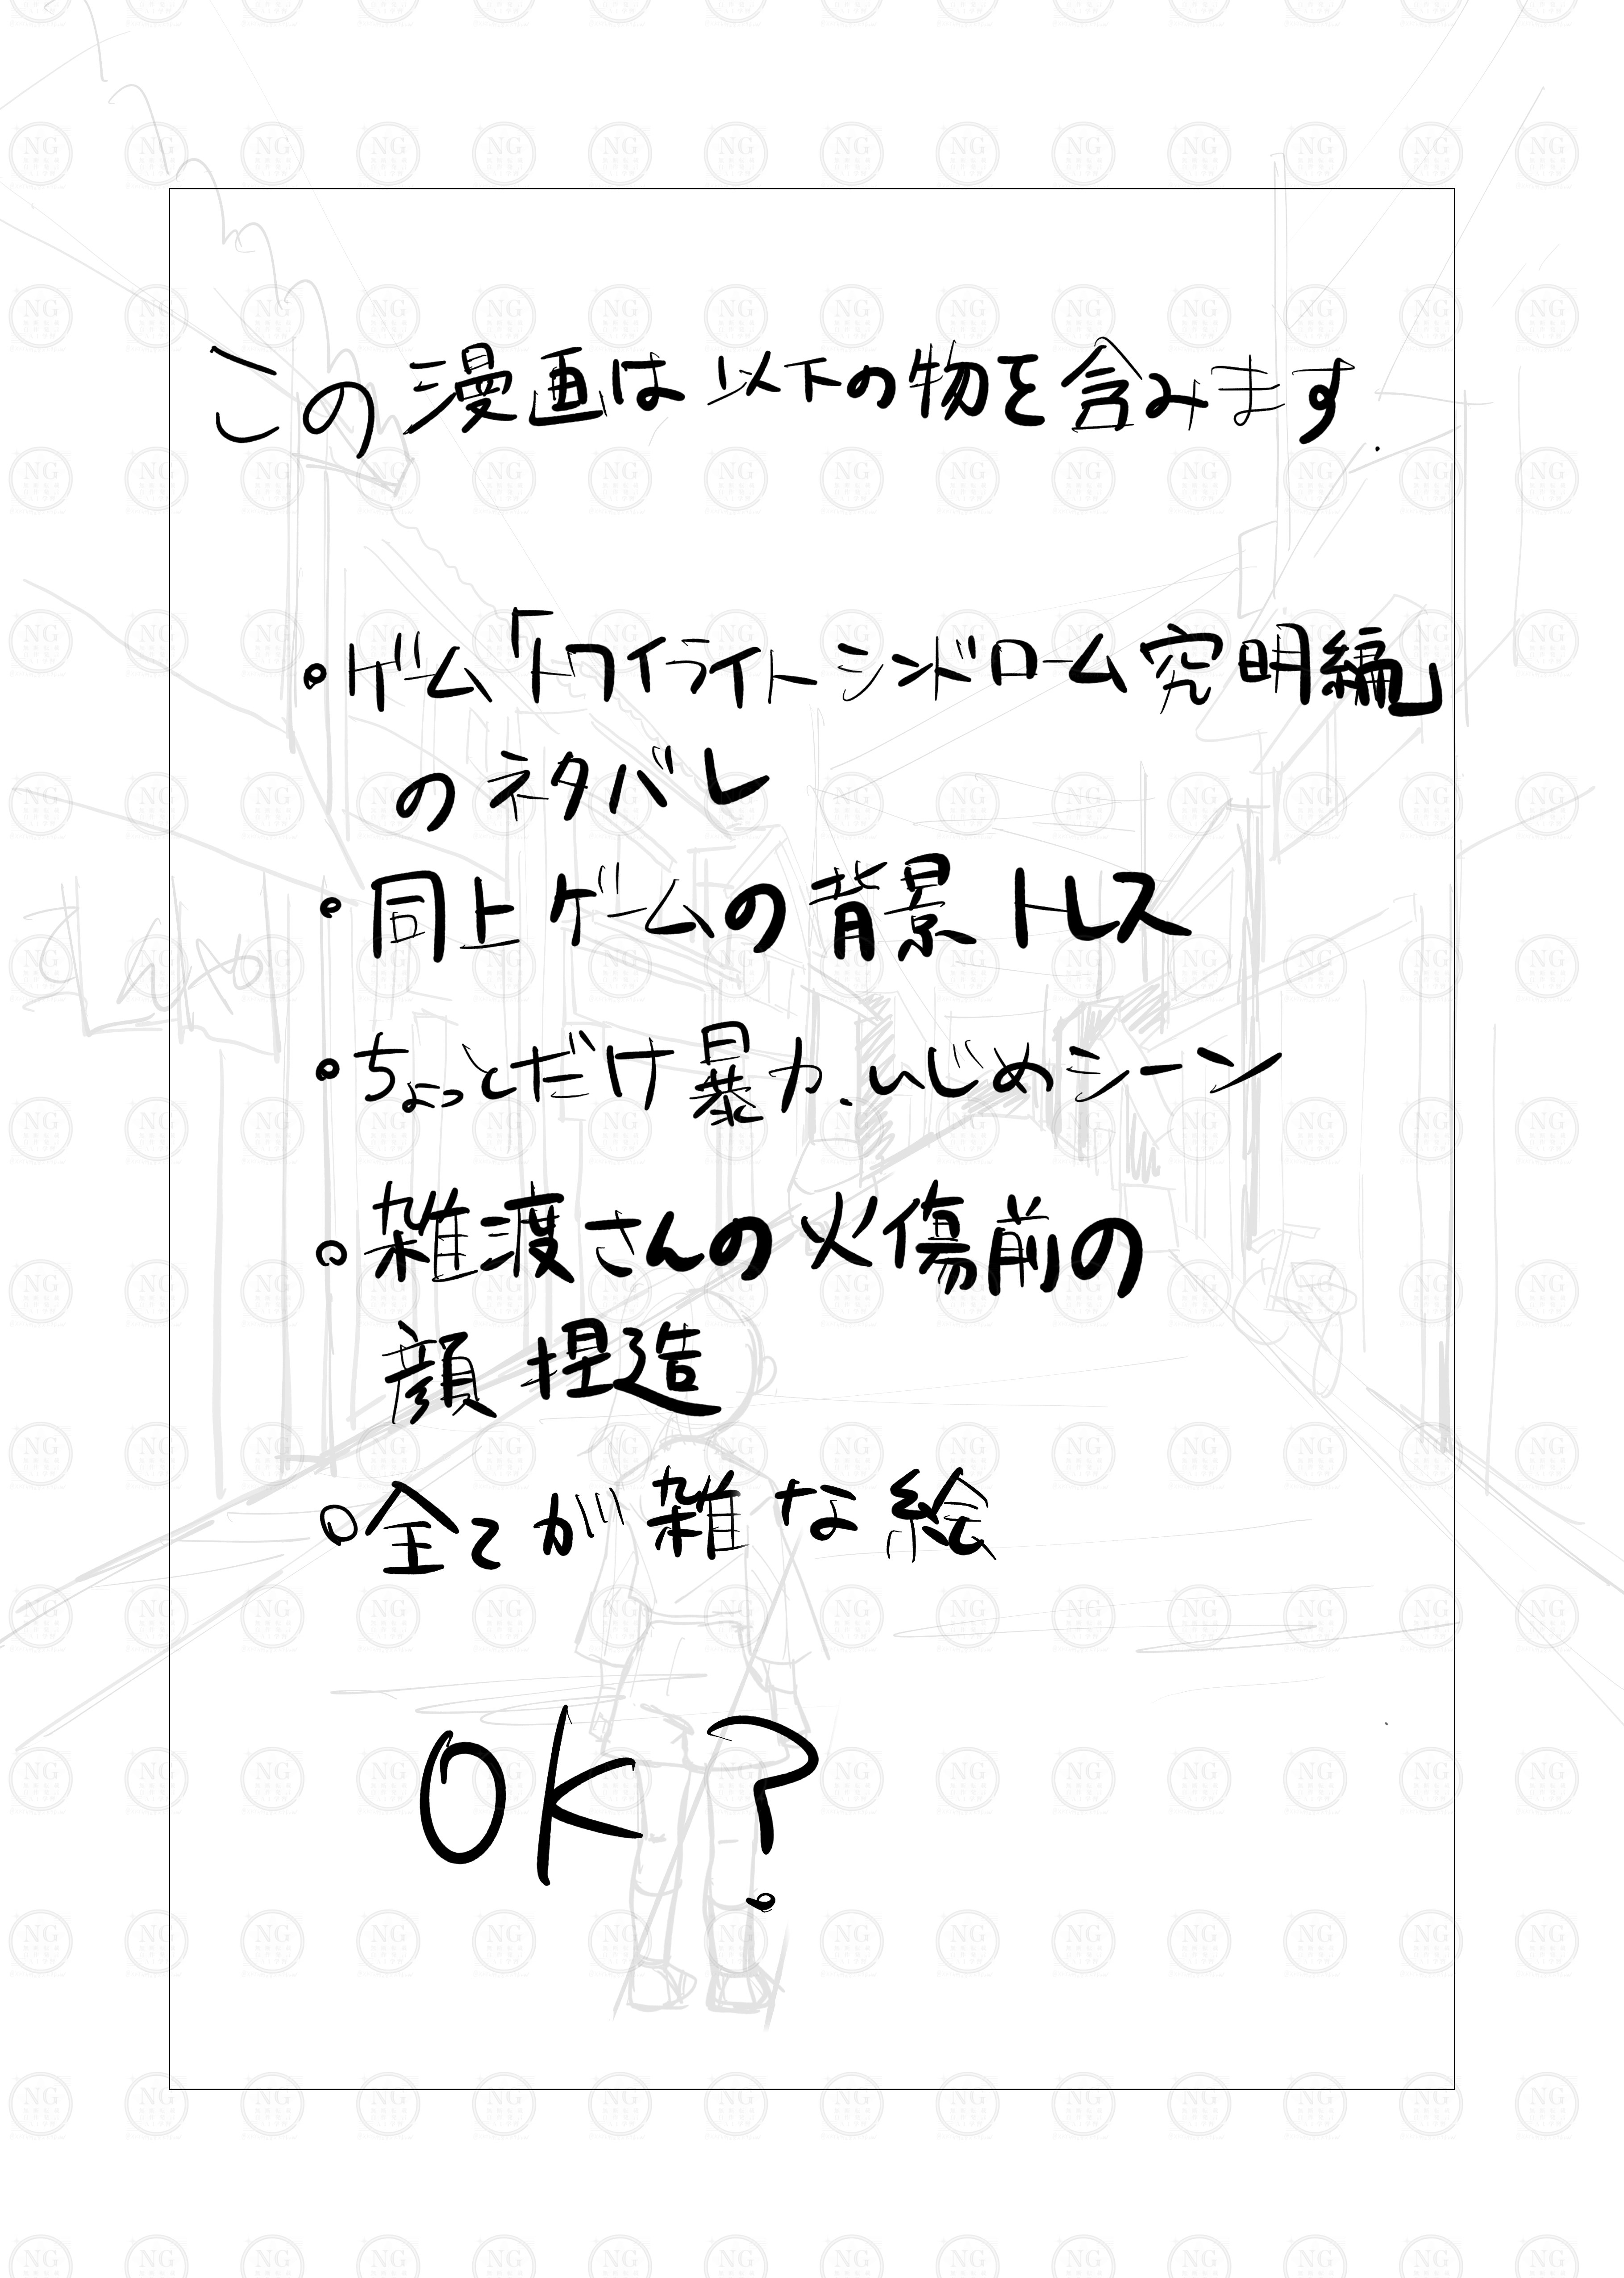 この漫画は以下の物を含みます.
・ゲーム「トワイライトシンドローム究明編」
のネタバレ
・同上ゲームの背景トレス
・ちょっとだけ暴力、いじめシーン
・雑渡さんの火傷前の
顔捏造
・全てが雑な絵
OK?
NG